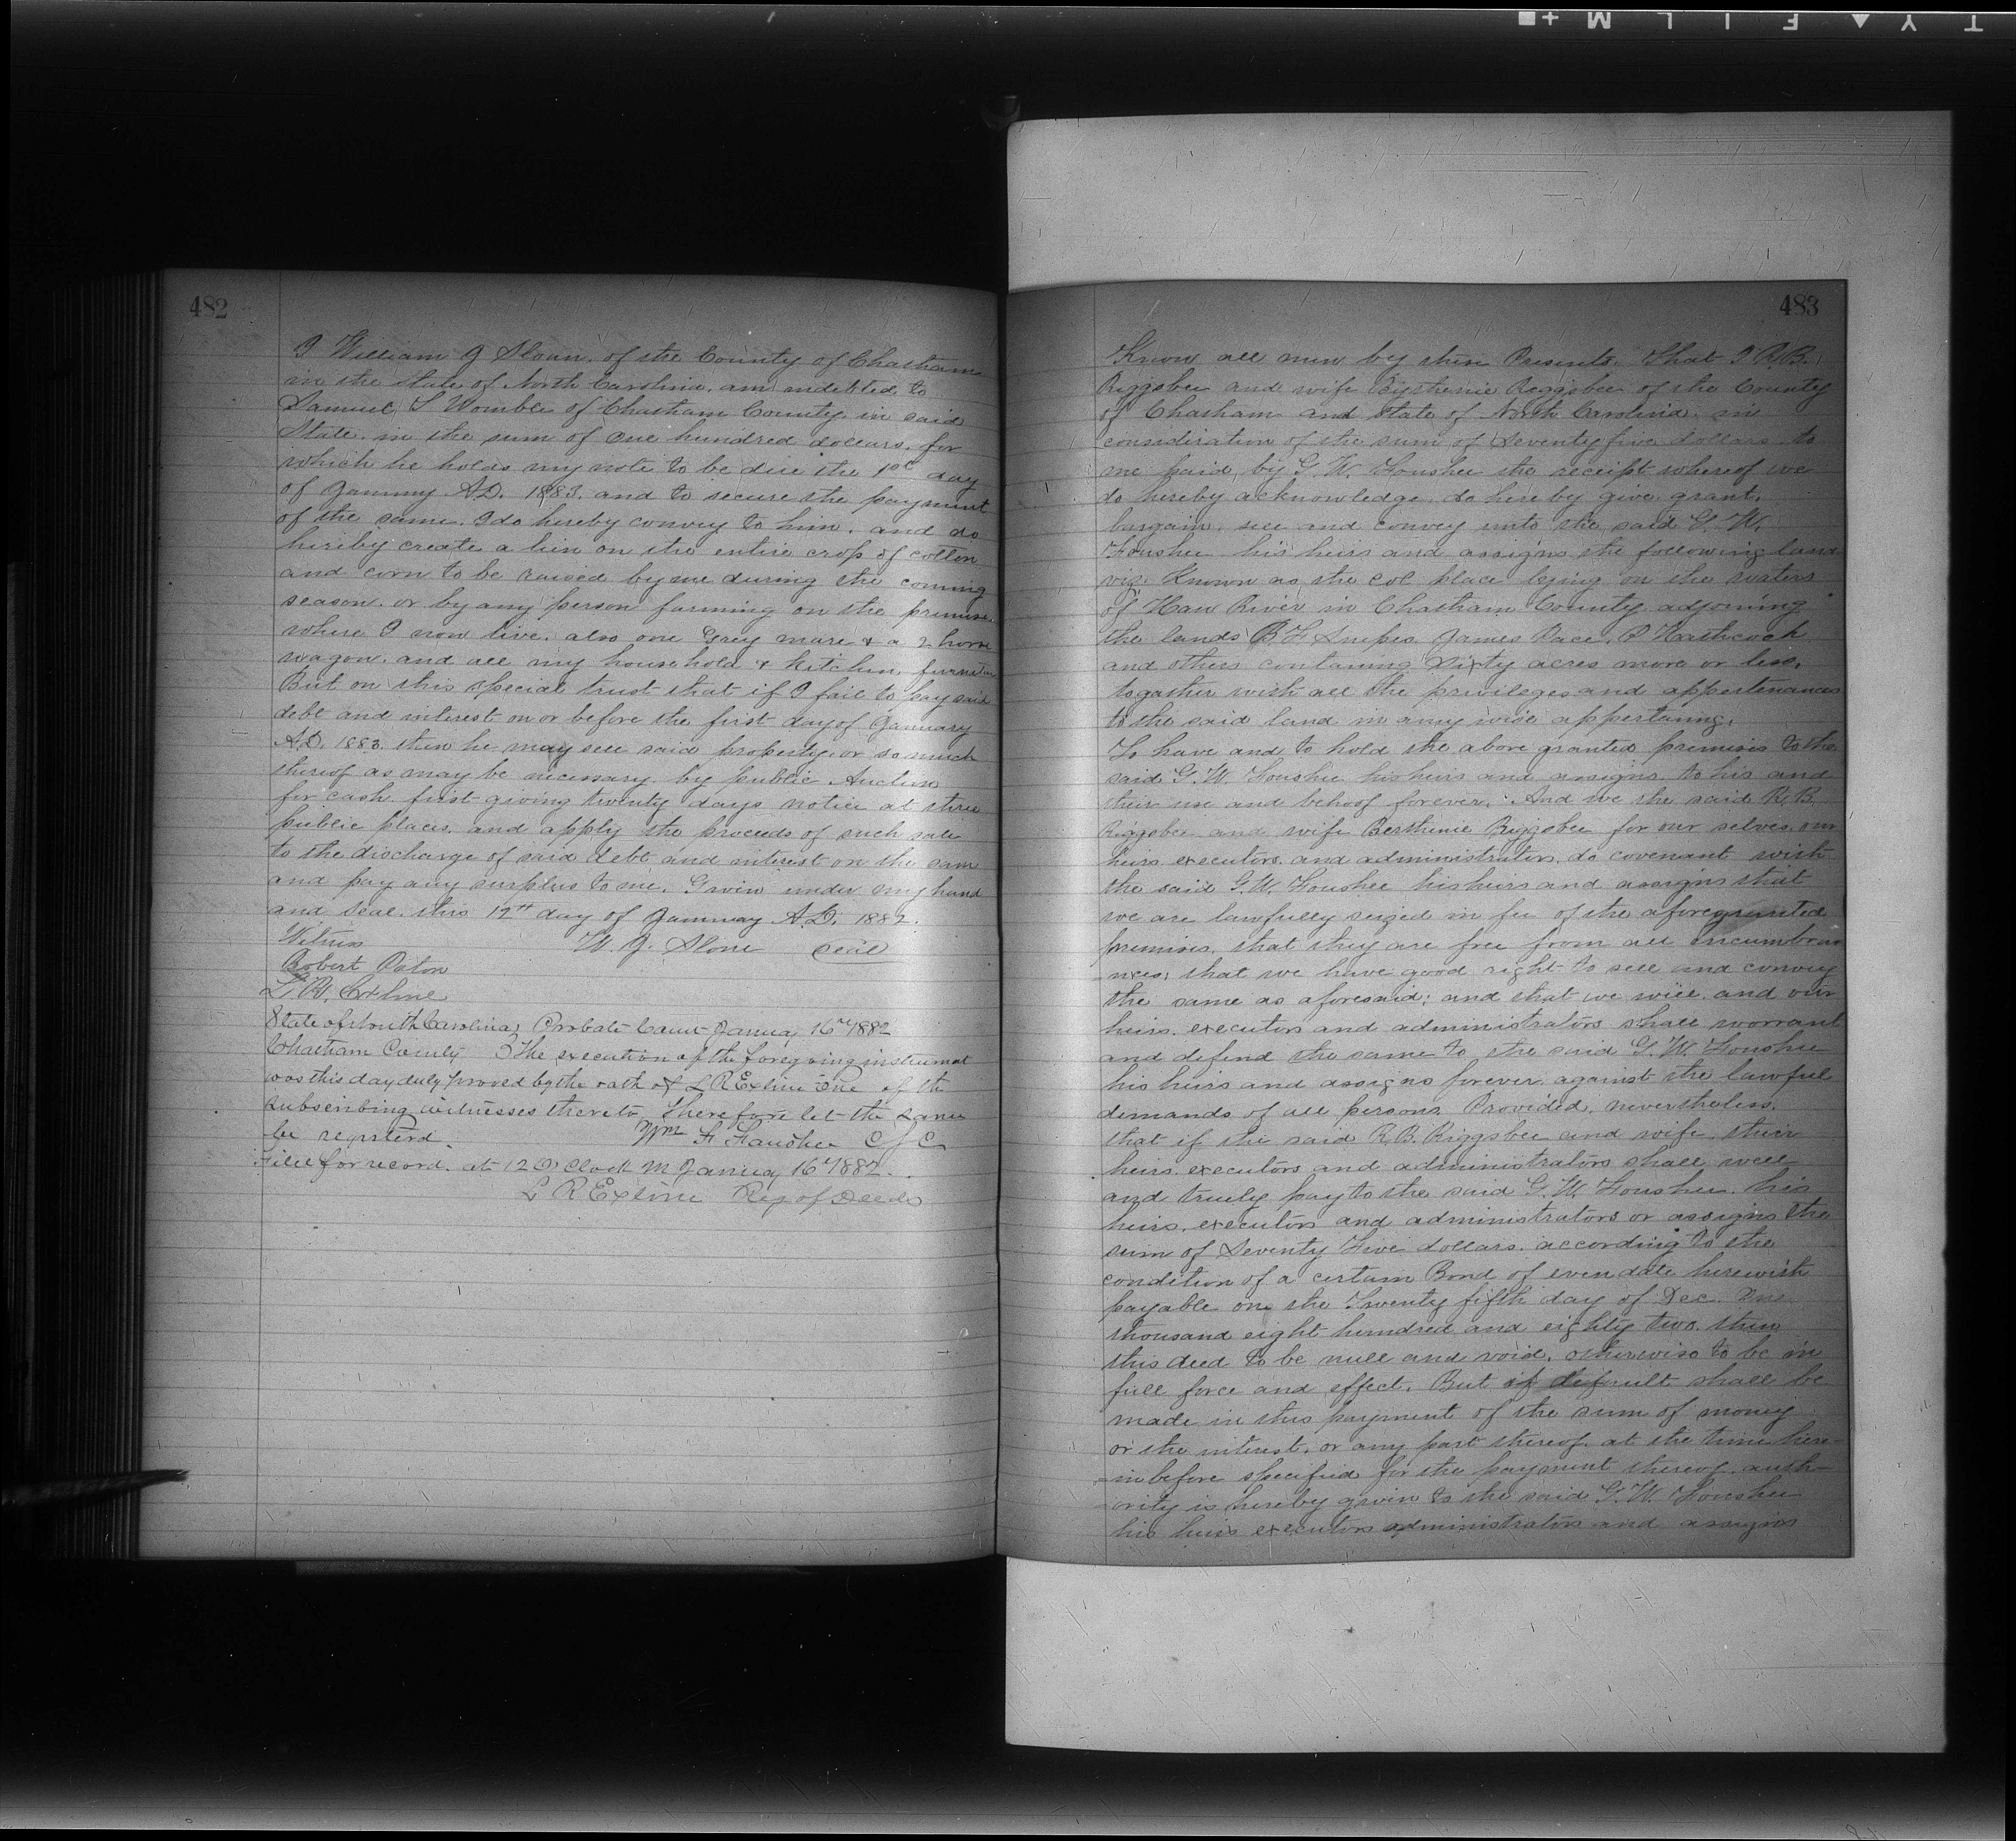 TY▲FILM+■
482
I William J Sloan, of the County of Chatham
in the State of North Carolina, am indebted to
Samuel S Womble of Chatham County in said
State, in the sum of One hundred dollars, for
which he holds my note to be due the 1st day
of January A.D. 1883. and to secure the payment
of the same. I do hereby convey to him, and do
hereby create a lien on the entire crop of cotton
and corn to be raised by me during the coming
season, or by any person farming on the premises
where I now live, also one Grey mare & a 2 horse
wagon, and all my household & kitchen furniture
But on this special trust that if I fail to pay said
debt and interest on or before the first day of January
A.D. 1883 then he may sell said property, or so much
thereof as may be necessary, by public Auction
for cash first giving twenty days notice at three
public places, and apply the proceeds of such sale
to the discharge of said debt and interest on the same
and pay any surplus to me. Given under my hand
and seal this 12th day of January A.D. 1882.
Witness W. J. Slone seal
Robert Paton
L R. Exline
State of North Carolina, Probate Court January 16th 1882
Chatham County } The execution of the foregoing instrument
was this day duly proved by the oath of L R Exline One of the
subscribing witnesses thereto, Therefore let the same
be registerd. Wm F Foushee C S C
Filed for record at 12 O, Clock M January 16th 1882.
L R Exline Reg of Deeds
483
Know all men by these Presents. That I R.B.
Riggsbee and wife Riggsbee of the County
of Chatham and State of North Carolina, in
consideration of the sum of Seventy five dollars to
me paid by G. W. Foushee the receipt whereof we
do hereby acknowledge, do hereby give, grant,
bargain, sell and convey unto the said G. W.
Foushee his heirs and assigns the following land
viz: Known as the place lying on the waters
of Haw River in Chatham County, adjoining
the lands B. F Snipes James Pace, P Hathcock
and others containing Sixty acres more or less,
togather with all the privileges and appertenances
to the said land in any wise appertaning,
To have and to hold the above granted premises to the
said G. W. Foushee his heirs and assigns to his and
their use and behoof forever. And we the said R. B.
Riggsbee and wife Berthenie Riggsbee for our selves, our
heirs executors and administrators, do covenant with
the said G. W. Foushee his heirs and assigns that
we are lawfully seized in fee of the aforegranted
premises, that they are free from all encumbran
-nces; that we have good right to sell and convey
the same as aforesaid; and that we will, and our
heirs, executors and administrators shall worrant
and defend the same to the said G. W. Foushee
his heirs and assigns forever, against the lawful
demands of all persons, Provided, nevertheless,
that if the said R. B. Riggsbee and wife, their
heirs, executors and administrators shall well
and truely pay to the said G. W. Foushee, his
heirs, executors and administrators or assigns the
sum of Seventy Five dollars, according to the
condition of a certain Bond of even date herewith
payable on the Twenty fifth day of Dec. One
thousand eight hundred and eighty two, then
this deed to be null and void, otherwise to be in
full force and effect. But if default shall be
made in this payment of the sum of money
or the interest, or any part thereof, at the time here-
-in before specified for the payment thereof, auth-
-ority is hereby given to the said G. W. Foushee
his heirs executors administrators and assigns